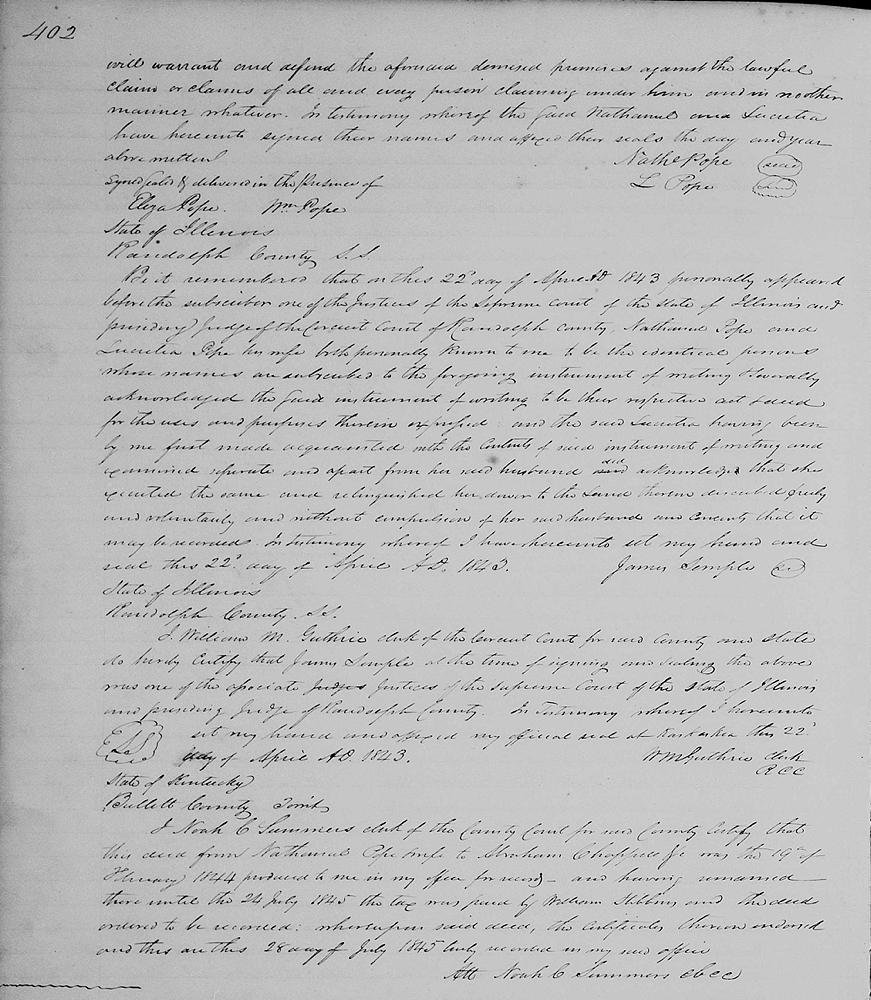 402
will warrant and defend the aforesaid demised premises against the lawful
claim or claims of all and every person claiming under him and in no other
manner whatever. In testimony whereof the Said Nathaniel and Lucretia
have hereunto signed their names and affixed their seals the day and year
above written Nathl Pope seal
Signed sealed & delivered in the Presence of L Pope seal
Eliza Pope. Wm Pope
State of Illinois
Randolph County S.S.
Be it remembered that on this 22d day of April AD 1843 personally appeared
before the subscriber one of the Justices of the Supreme Court of the State of Illinois and
presiding Judge of the Circuit Court of Randolph County, Nathaniel Pope and
Lucretia Pope his wife both personally known to me to be the identical persons
whose names are subscribed to the foregoing instrument of writing & severally
acknowledged the Said instrument of writing to be their respective act & deed
for the uses and purposes therein expressed and the said Lucretia having been
by me first made acquainted with the Contents of said instrument of writing and
examined seperate and apart from her said husband did acknowledge that she
executed the same and relinquished her dower to the Land therein described freely
and voluntarily and without compulsion of her said husband and Consents that it
may be recorded. In testimony whereof I have hereunto set my hand and
seal this 22d day of April AD. 1843. James Semple
State of Illinois
Randolph County SS.
I William M. Guthrie clerk of the Circuit Court for said County and State
do hereby Certify that James Semple at the time of signing and sealing the above
was one of the associate Judges Justices of the Supreme Court of the State of Illinois
and presiding Judge of Randolph County. In Testimony whereof I hereunto
LS set my hand and affixed my official seal at Kaskaskia this 22d
day of April AD. 1843. Wm Guthrie clerk
RCC
State of Kentucky
Bullett County Towit
I Noah C Summers clerk of the County Court for said County Certify that
this deed from Nathaniel Pope & wife to Abraham Chappell Jr was the 19th of
February 1844 produced to me in my office for record and having remained
there until the 24 July 1845 the tax was paid by William Stebbins and the deed
ordered to be recorded: whereupon said deed, the Certificates thereon endorsed
and this are this 28 day of July 1845 truly recorded in my said office
Att Noah C Summers CBCC